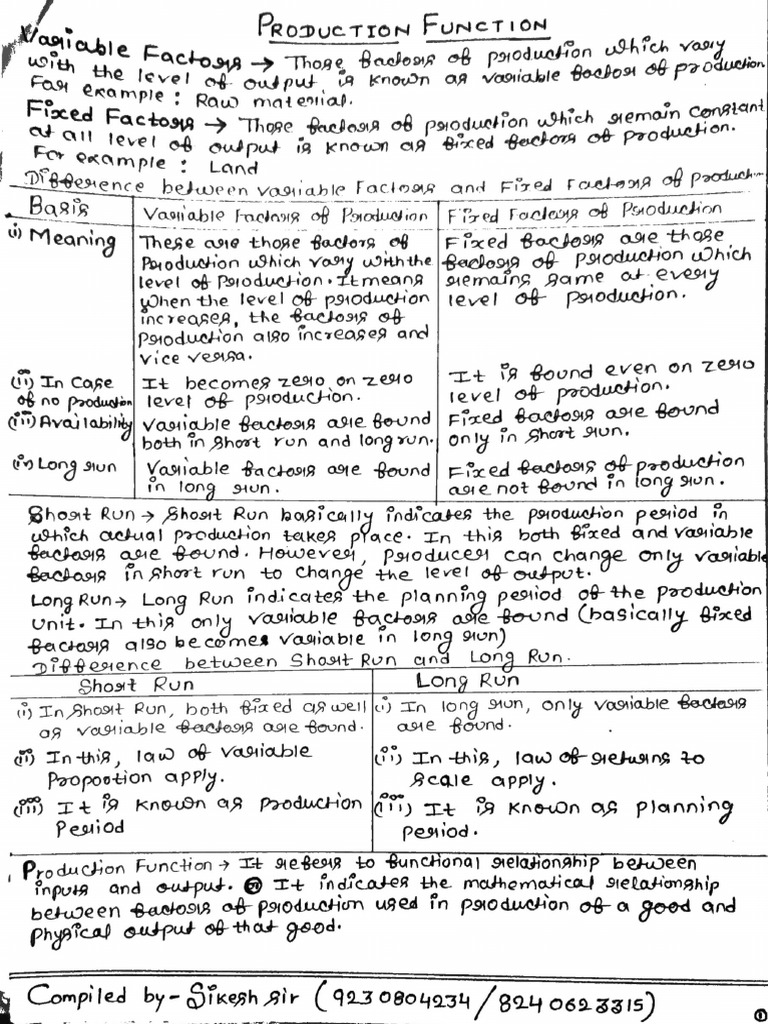 PRODUCTION FUNCTION
Variable Factors → Those factors of production which vary
with the level of output is known as variable factor of production
For example : Raw material.
Fixed Factors → Those factors of production which remain constant
at all level of output is known as fixed factors of production.
For example : Land
Difference between variable Factors and Fixed Factors of production
Basis Variable Factors of Production Fixed Factors of Production
(i) Meaning These are those factors of Fixed factors are those
Production which vary with the factors of production which
level of Production. It means remains same at every
when the level of production level of production.
increases, the factors of
production also increases and
vice versa.
(ii) In Case It becomes zero on zero It is found even on zero
of no production level of production. level of production.
(iii) Availability Variable factors are found Fixed factors are found
both in short run and long run. only in short run.
(iv) Long run Variable factors are found Fixed factors of production
in long run. are not found in long run.
Short Run → Short Run basically indicates the production period in
which actual production takes place. In this both fixed and variable
factors are found. However, producer can change only variable
factors in short run to change the level of output.
Long Run → Long Run indicates the planning period of the production
unit. In this only variable factors are found (basically fixed
factors also becomes variable in long run)
Difference between Short Run and Long Run.
Short Run Long Run
(i) In Short Run, both fixed as well (i) In long run, only variable factors
as variable factors are found. are found.
(ii) In this, law of variable (ii) In this, law of returns to
Propootion apply. scale apply.
(iii) It is known as production (iii) It is known as planning
Period period.
Production Function → It refers to functional relationship between
inputs and output. It indicates the mathematical relationship
between factors of production used in production of a good and
physical output of that good.
Compiled by - Sikesh sir (9230804234 / 8240623315)
1